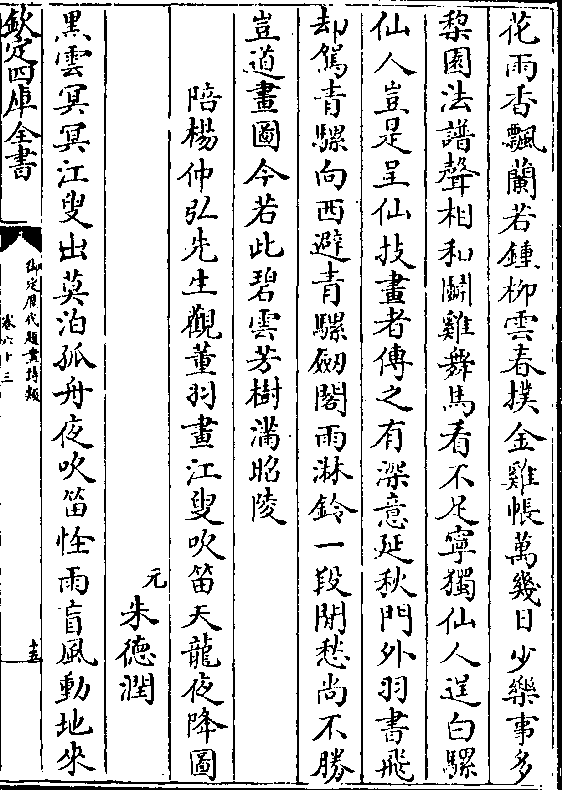 花雨香飄蘭若鍾柳雲春撲金雞帳萬幾日少樂事多
梨園法譜聲相和鬬雞舞馬看不足寧獨仙人逞白騾
仙人豈是呈仙技畫者傳之有深意延秋門外羽書飛
却駕青騾向西避青騾劒閣雨淋鈴一段閒愁尚不勝
豈道畫圖今若此碧雲芳樹滿昭陵
陪楊仲弘先生觀董羽畫江叟吹笛天龍夜降圖
元朱德潤
黑雲冥冥江叟出莫泊孤舟夜吹笛怪雨盲風動地來
欽定四庫全書
御定歷代題畫詩類
卷六十三
十五